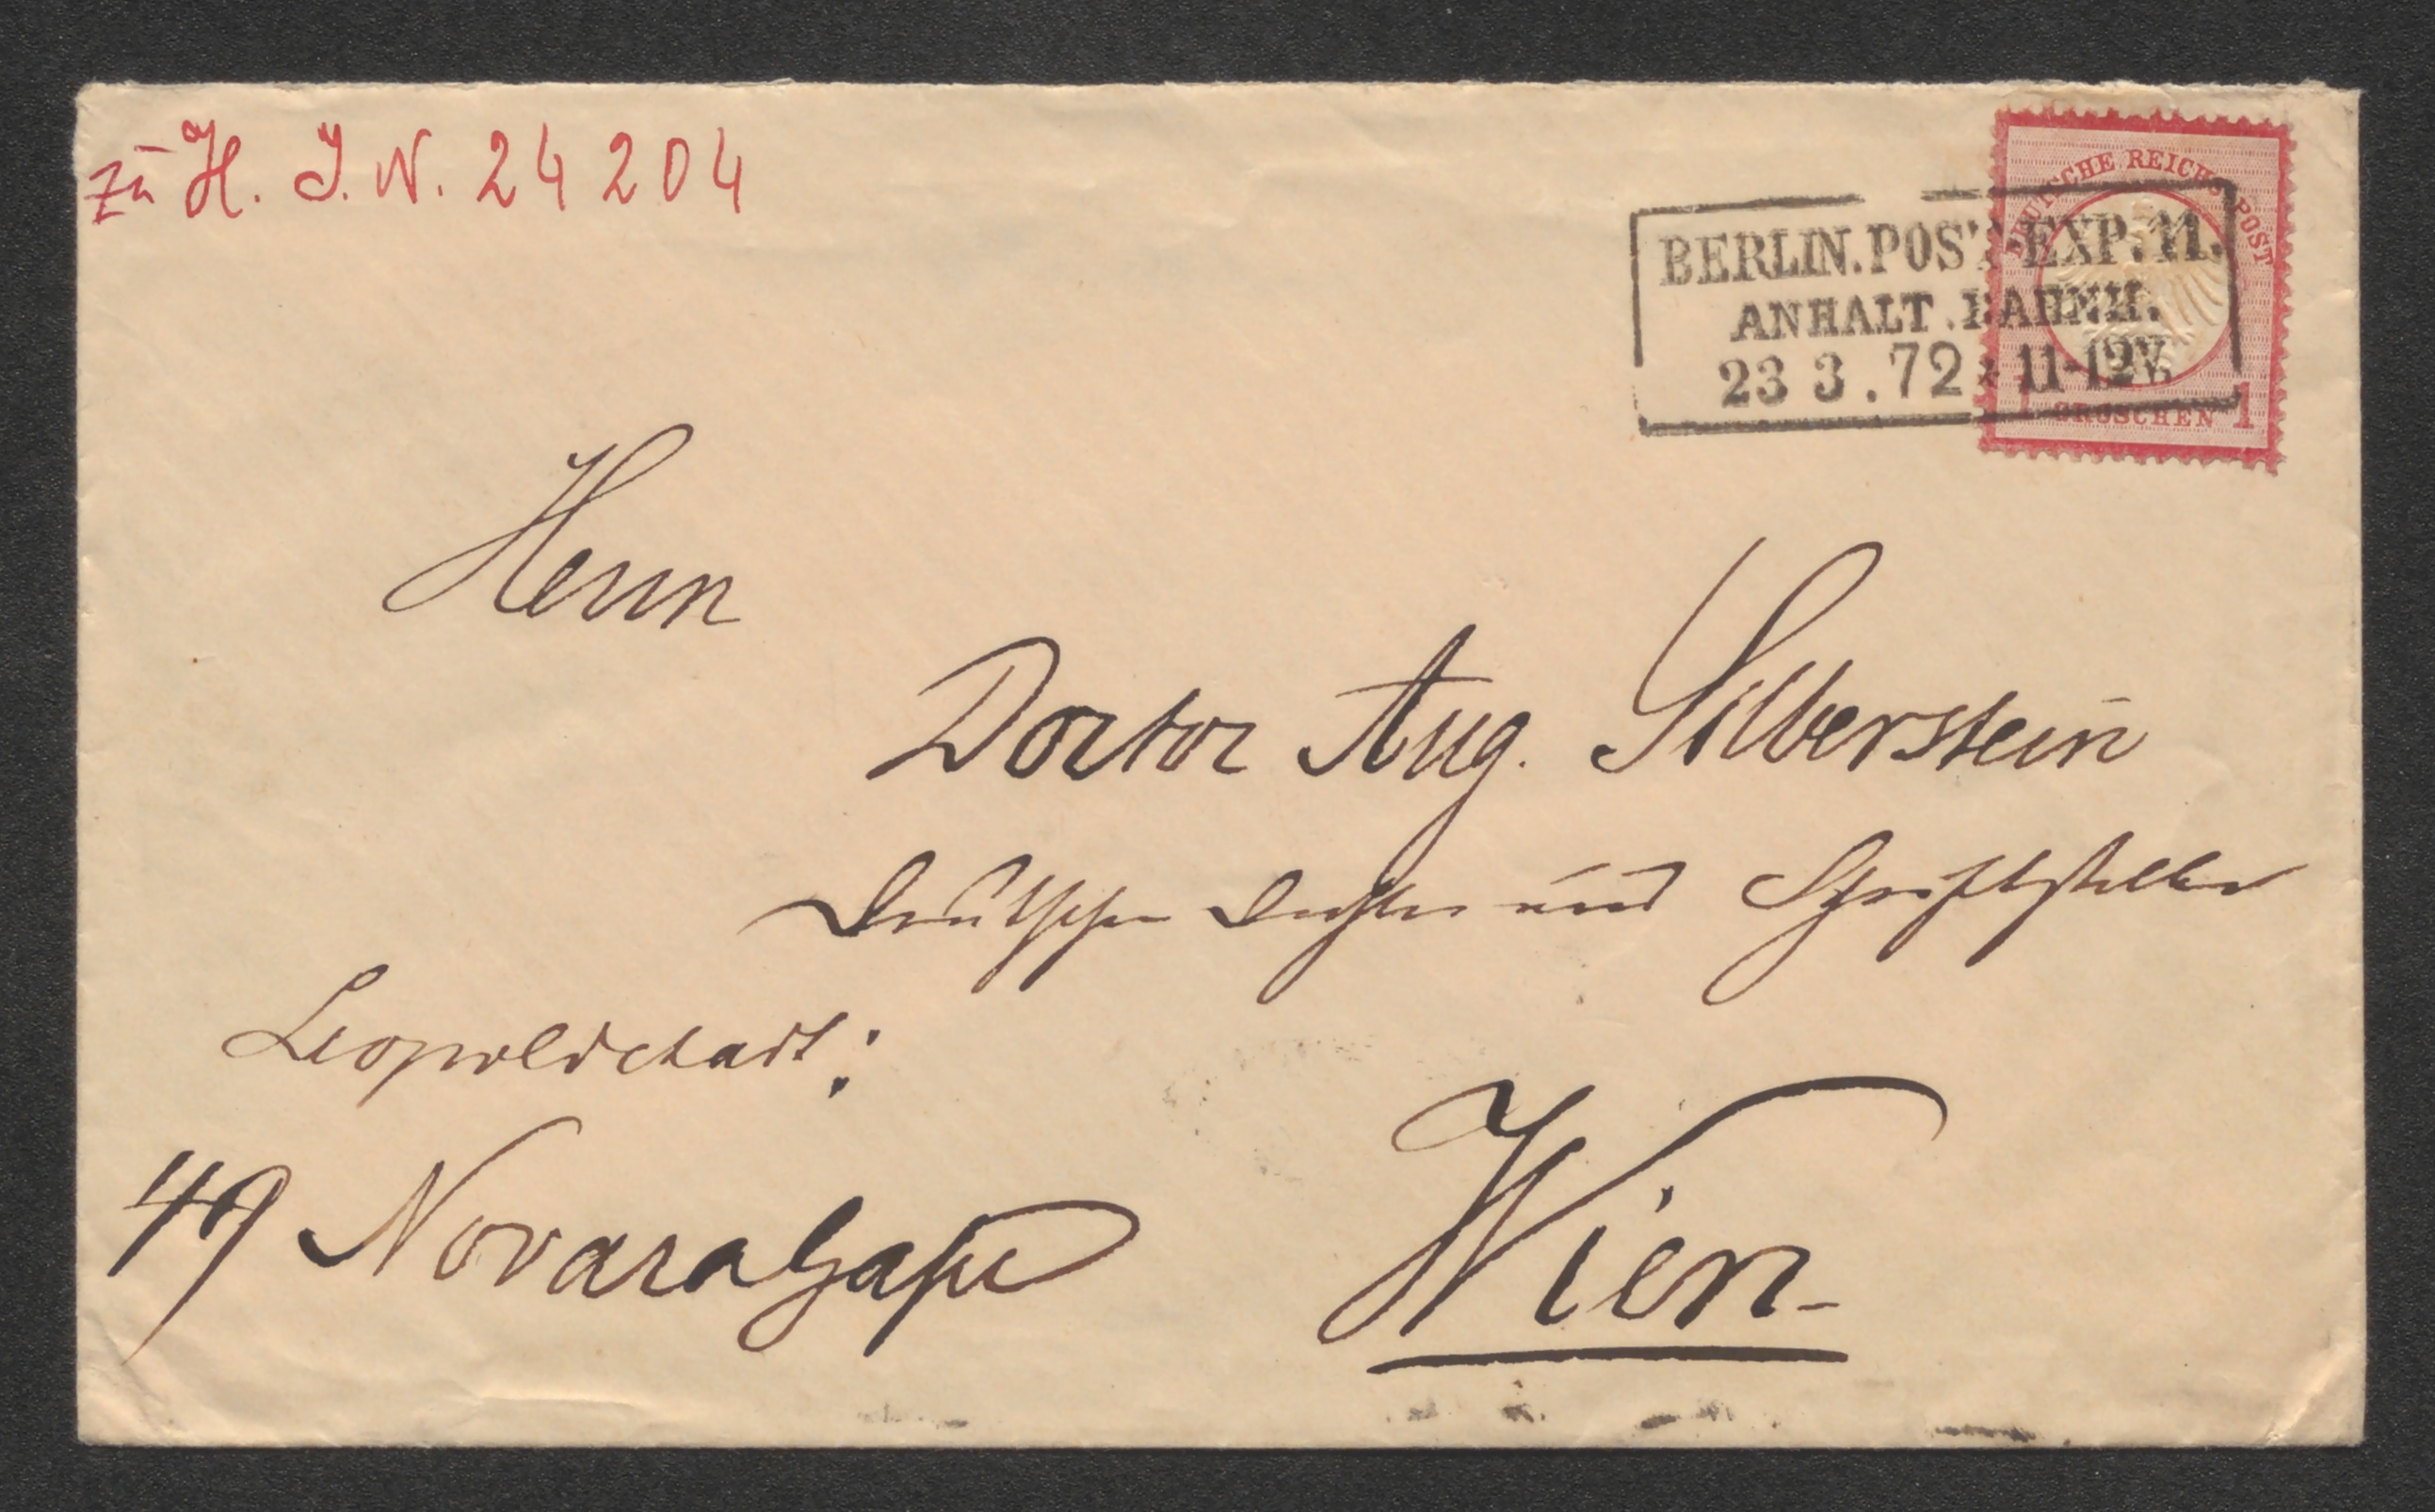 zu H. I. N. 24204
DEUTSCHE REICHS POST
BERLIN. POST-EXP. 11.
ANHALT. BAHNH.
23 3. 72 11-12V.
1 GROSCHEN 1
Herrn
Doctor Aug. Silberstein
Deutscher Dichter und Schriftsteller
Leopoldstadt:
49 Novaragasse
Wien